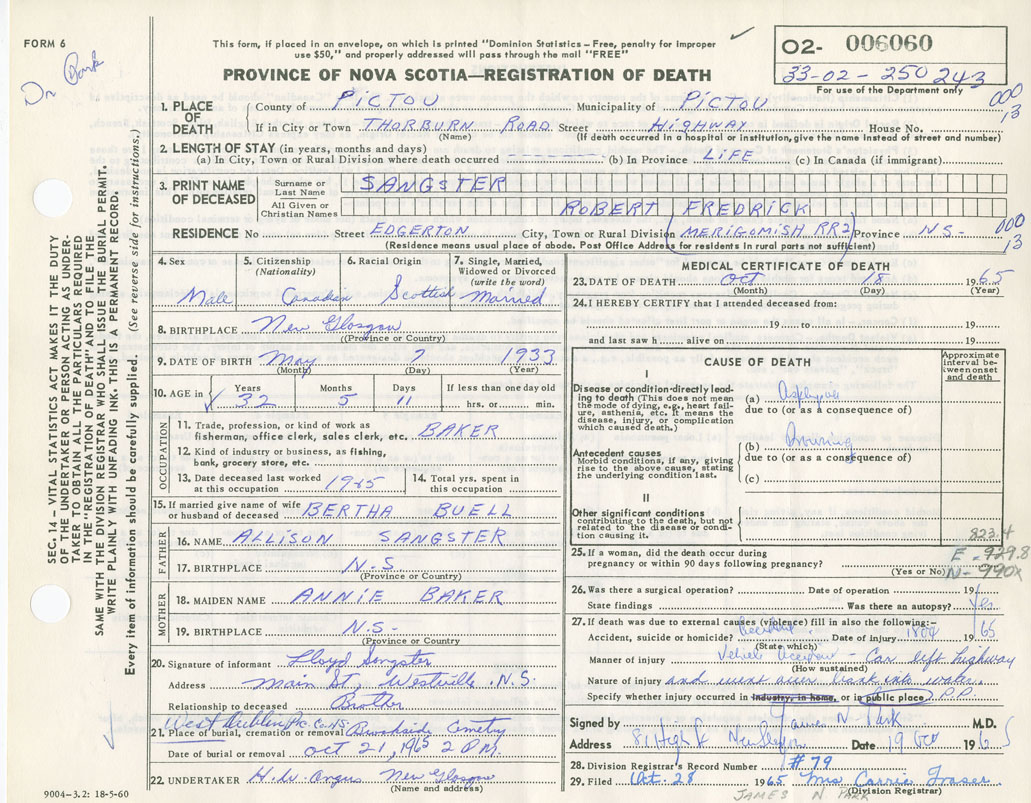 FORM 6
Dr Park
This form, if placed in an envelope, on which is printed "Dominion Statistics – Free, penalty for improper
use $50," and properly addressed will pass through the mail "FREE"
PROVINCE OF NOVA SCOTIA—REGISTRATION OF DEATH
O2- 006060
33-02-250243
For use of the Department only
000
13
SEC. 14 – VITAL STATISTICS ACT MAKES IT THE DUTY
OF THE UNDERTAKER OR PERSON ACTING AS UNDER-
TAKER TO OBTAIN ALL THE PARTICULARS REQUIRED
IN THE "REGISTRATION OF DEATH" AND TO FILE THE
SAME WITH THE DIVISION REGISTRAR WHO SHALL ISSUE THE BURIAL PERMIT.
WRITE PLAINLY WITH UNFADING INK. THIS IS A PERMANENT RECORD.
Every item of information should be carefully supplied. (See reverse side for instructions.)
1. PLACE OF DEATH
County of PICTOU Municipality of PICTOU
If in City or Town THORBURN ROAD Street HIGHWAY House No.
(Name) (If death occurred in a hospital or institution, give the name instead of street and number)
2. LENGTH OF STAY (in years, months and days)
(a) In City, Town or Rural Division where death occurred (b) In Province LIFE (c) In Canada (if immigrant)
3. PRINT NAME OF DECEASED
Surname or Last Name SANGSTER
All Given or Christian Names ROBERT FREDRICK
RESIDENCE No Street EDGERTON City, Town or Rural Division (MERIGOMISH RR2) Province NS-
000
13
(Residence means usual place of abode. Post Office Address for residents in rural parts not sufficient)
4. Sex Male
5. Citizenship (Nationality) Canadian
6. Racial Origin Scottish
7. Single, Married, Widowed or Divorced (write the word) Married
8. BIRTHPLACE New Glasgow
(Province or Country)
9. DATE OF BIRTH May 7 1933
(Month) (Day) (Year)
10. AGE in Years 32 Months 5 Days 11 If less than one day old hrs. or min.
OCCUPATION
11. Trade, profession, or kind of work as
fisherman, office clerk, sales clerk, etc. BAKER
12. Kind of industry or business, as fishing,
bank, grocery store, etc.
13. Date deceased last worked
at this occupation
14. Total yrs. spent in
this occupation
15. If married give name of wife
or husband of deceased BERTHA BUELL
FATHER
16. NAME ALLISON SANGSTER
17. BIRTHPLACE N.S
(Province or Country)
MOTHER
18. MAIDEN NAME ANNIE BAKER
19. BIRTHPLACE N.S-
(Province or Country)
20. Signature of informant Lloyd Sangster
Address Main St, Westville, N.S.
Relationship to deceased Brother
West Dublin
21. Place of burial, cremation or removal Brookside Cemetry
Date of burial or removal Oct 21, 1965 2 P.M.
22. UNDERTAKER H.W. Angus New Glasgow
(Name and address)
9004–3.2: 18-5-60
MEDICAL CERTIFICATE OF DEATH
23. DATE OF DEATH Oct 18 1965
(Month) (Day) (Year)
24. I HEREBY CERTIFY that I attended deceased from:
19 to 19
and last saw h alive on 19
CAUSE OF DEATH
Approximate interval between onset and death
I
Disease or condition directly lead-
ing to death (This does not mean
the mode of dying, e.g., heart fail-
ure, asthenia, etc. It means the
disease, injury, or complication
which caused death.)
(a) Asphyxia
due to (or as a consequence of)
Antecedent causes
Morbid conditions, if any, giving
rise to the above cause, stating
the underlying condition last.
(b) Drowning
due to (or as a consequence of)
(c)
II
Other significant conditions
contributing to the death, but not
related to the disease or condi-
tion causing it.
823.4
25. If a woman, did the death occur during
pregnancy or within 90 days following pregnancy?
(Yes or No)
E-929.8
N-990X
26. Was there a surgical operation? Date of operation 19
State findings Was there an autopsy? Yes
27. If death was due to external causes (violence) fill in also the following:-
Accident, suicide or homicide? Accident Date of injury 18 Oct 1965
(State which)
Manner of injury Vehicle Accident - Car left highway
(How sustained)
Nature of injury and went over bank into water.
Specify whether injury occurred in industry, in home, or in public place) P.P.
Signed by James N Park M.D.
Address 81 High St New Glasgow Date 19 Oct 1965
28. Division Registrar's Record Number #79
29. Filed Oct. 28 1965 Mrs Carrie Fraser
(Division Registrar)
JAMES N. PARK